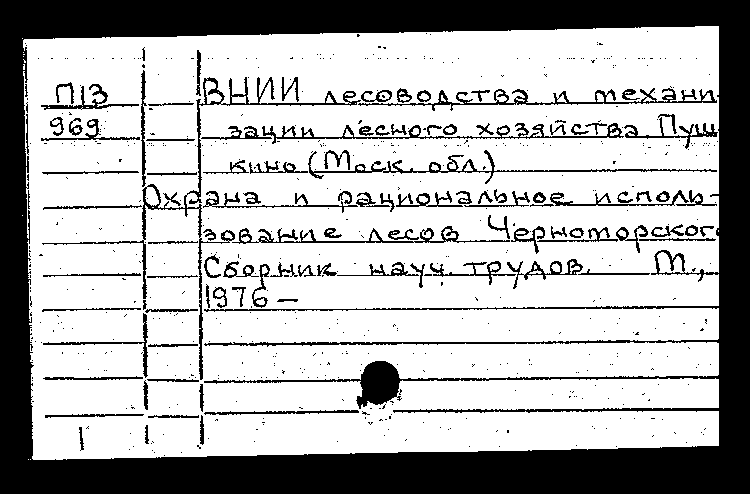 П13 ВНИИ лесоводства и механи-
969 зации лесного хозяйства. Пуш-
кино (Моск. обл.)
Охрана и рациональное исполь-
зование лесов Черноморского
Сборник науч. трудов. М.,
1976 —
1